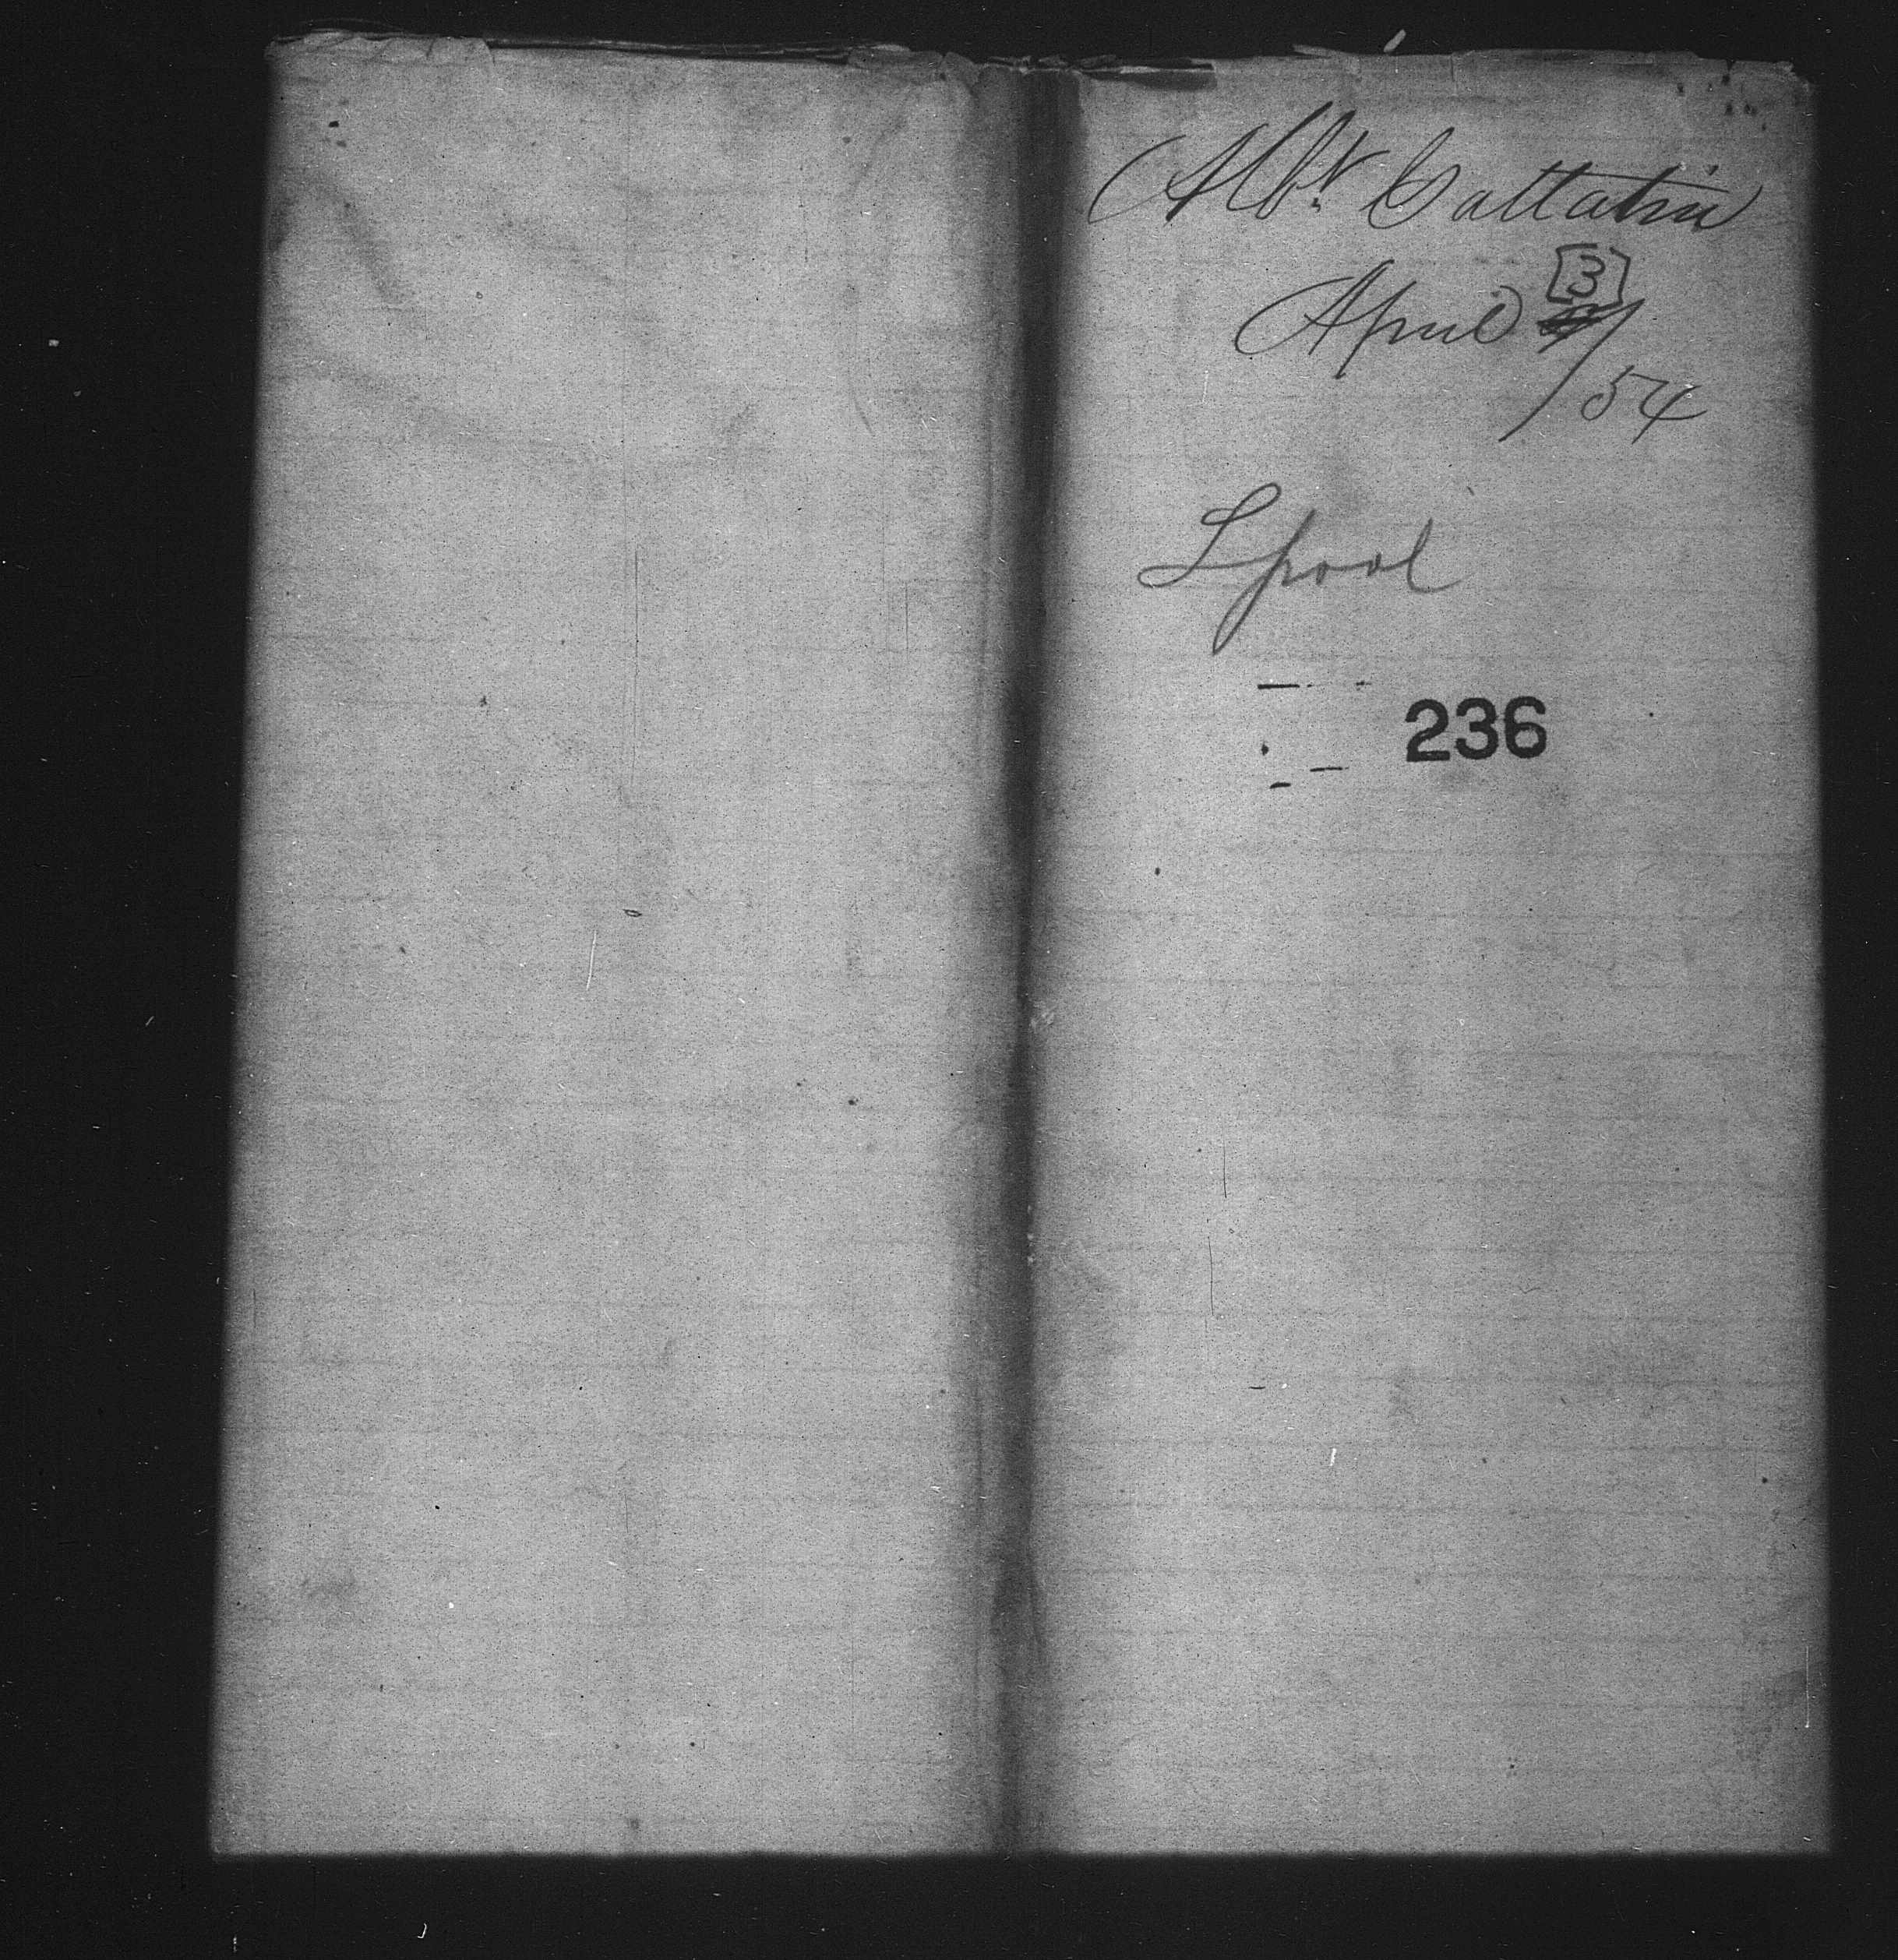 Albt. Gallatin
April [3]/54
Lpool
236